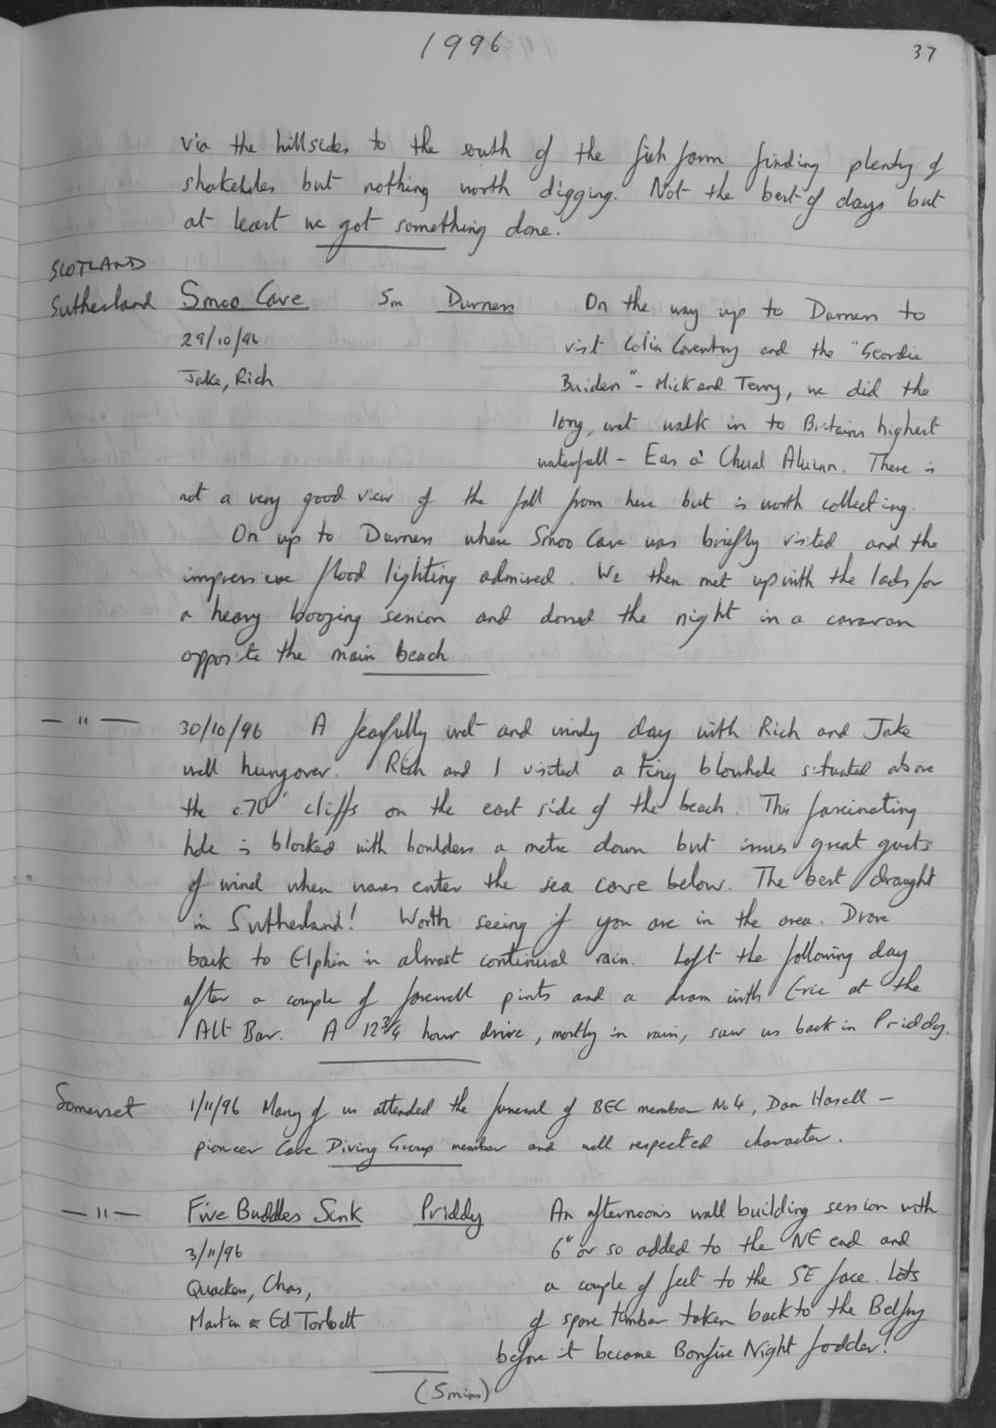 1996
37
via the hillsides to the south of the fish farm finding plenty of
shakeholes but nothing worth digging. Not the best of days but
at least we got something done.
SCOTLAND
Sutherland Smoo Cave 5m Durness On the way up to Durness to
29/10/96 visit Colin Coventry and the "Geordie
Jake, Rich Builders" - Mick and Terry, we did the
long, wet walk in to Britains highest
waterfall - Eas a' Chual Aluinn. There is
not a very good view of the fall from here but is worth collecting.
On up to Durness where Smoo Cave was briefly visited and the
impressive flood lighting admired. We then met up with the lads for
a heavy boozing session and dossed the night in a caravan
opposite the main beach
— " — 30/10/96 A fearfully wet and windy day with Rich and Jake
well hungover. Rich and I visited a tiny blowhole situated above
the c.70' cliffs on the east side of the beach. This fascinating
hole is blocked with boulders a metre down but issues great gusts
of wind when waves enter the sea cave below. The best draught
in Sutherland! Worth seeing if you are in the area. Drove
back to Elphin in almost continual rain. Left the following day
after a couple of farewell pints and a dram with Eric at the
Alt Bar. A 12¾ hour drive, mostly in rain, saw us back in Priddy.
Somerset 1/11/96 Many of us attended the funeral of BEC member No 4, Dan Hasell -
pioneer Cave Diving Group member and well respected character.
— " — Five Buddles Sink Priddy An afternoons wall building session with
3/11/96 6" or so added to the NE end and
Quackers, Chas, a couple of feet to the SE face. Lots
Martin & Ed Torbett of spare timber taken back to the Belfry
before it became Bonfire Night fodder!
(5mins)